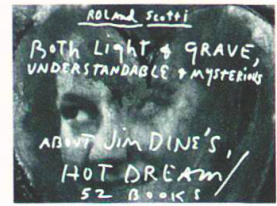 ROLAND Scotti
BOTH LIGHT & GRAVE,
UNDERSTANDABLE & MYSTERIOUS
ABOUT JIM DINE'S,
HOT DREAM/
52 BOOKS